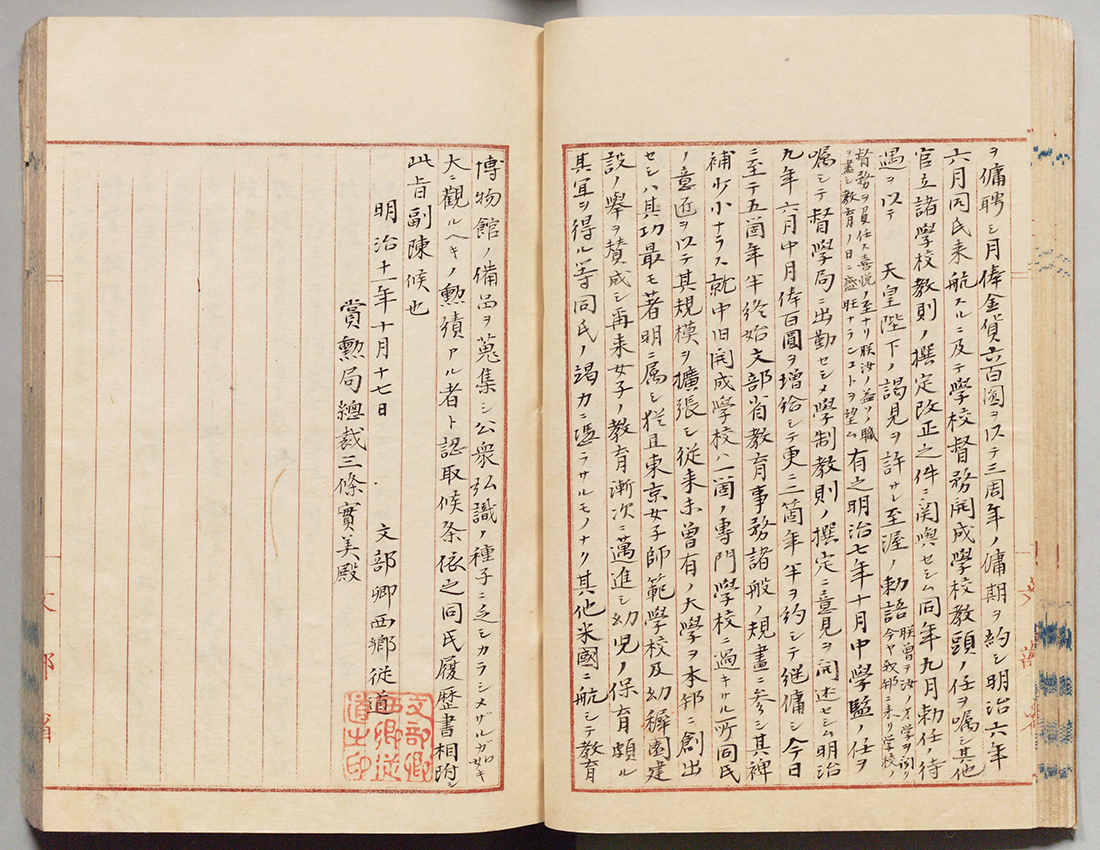 ヲ傭聘シ月俸金貨六百圓ヲ以テ三周年ノ傭期ヲ約シ明治六年
六月同氏来航スルニ及テ學校督務開成學校教頭ノ任ヲ嘱シ其他
官立諸學校教則ノ撰定改正之件ニ関與セシム同年九月勅任ノ待
遇ヲ以テ 天皇陛下ノ謁見ヲ許サレ至渥ノ勅語 朕曽ヲ汝ノ才学ヲ聞ケリ
今ヤ我邦ニ来リ学校ノ
督務ヲ負任ス喜悦ノ至ナリ朕汝ノ益ソノ職
ヲ盡シ教育ノ日ニ盛旺ナランコトヲ望ム 有之明治七年十月中學監ノ任ヲ
嘱シテ督學局ニ出勤セシメ學制教則ノ撰定ニ意見ヲ開述セシム明治
九年六月中月俸百圓ヲ増給シテ更ニ二箇年半ヲ約シテ継傭シ今日
ニ至テ五箇年半終始文部省教育事務諸般ノ規畫ニ参シ其裨
補少小ナラス就中旧開成學校ハ一箇ノ專門學校ニ過キサル所同氏
ノ意匠ヲ以テ其規模ヲ擴張シ従来未曽有ノ大學ヲ本邦ニ創出
セシハ其功最モ著明ニ属シ犹且東京女子師範學校及幼穉園建
設ノ挙ヲ賛成シ爾来女子ノ教育漸次ニ邁進シ幼児ノ保育頗ル
其宜ヲ得ル等同氏ノ竭力ニ憑ラサルモノナク其他米國ニ航シテ教育
博物館ノ備品ヲ蒐集シ公衆弘識ノ種子ニ乏シカラシメザルガ如キ
大ニ觀ルヘキノ勲績アル者ト認取候条依之同氏履歴書相附シ
此旨副陳候也
明治十一年十月十七日
文部卿西郷従道
文部卿西郷従道之印
賞勲局總裁三條實美殿
文部省